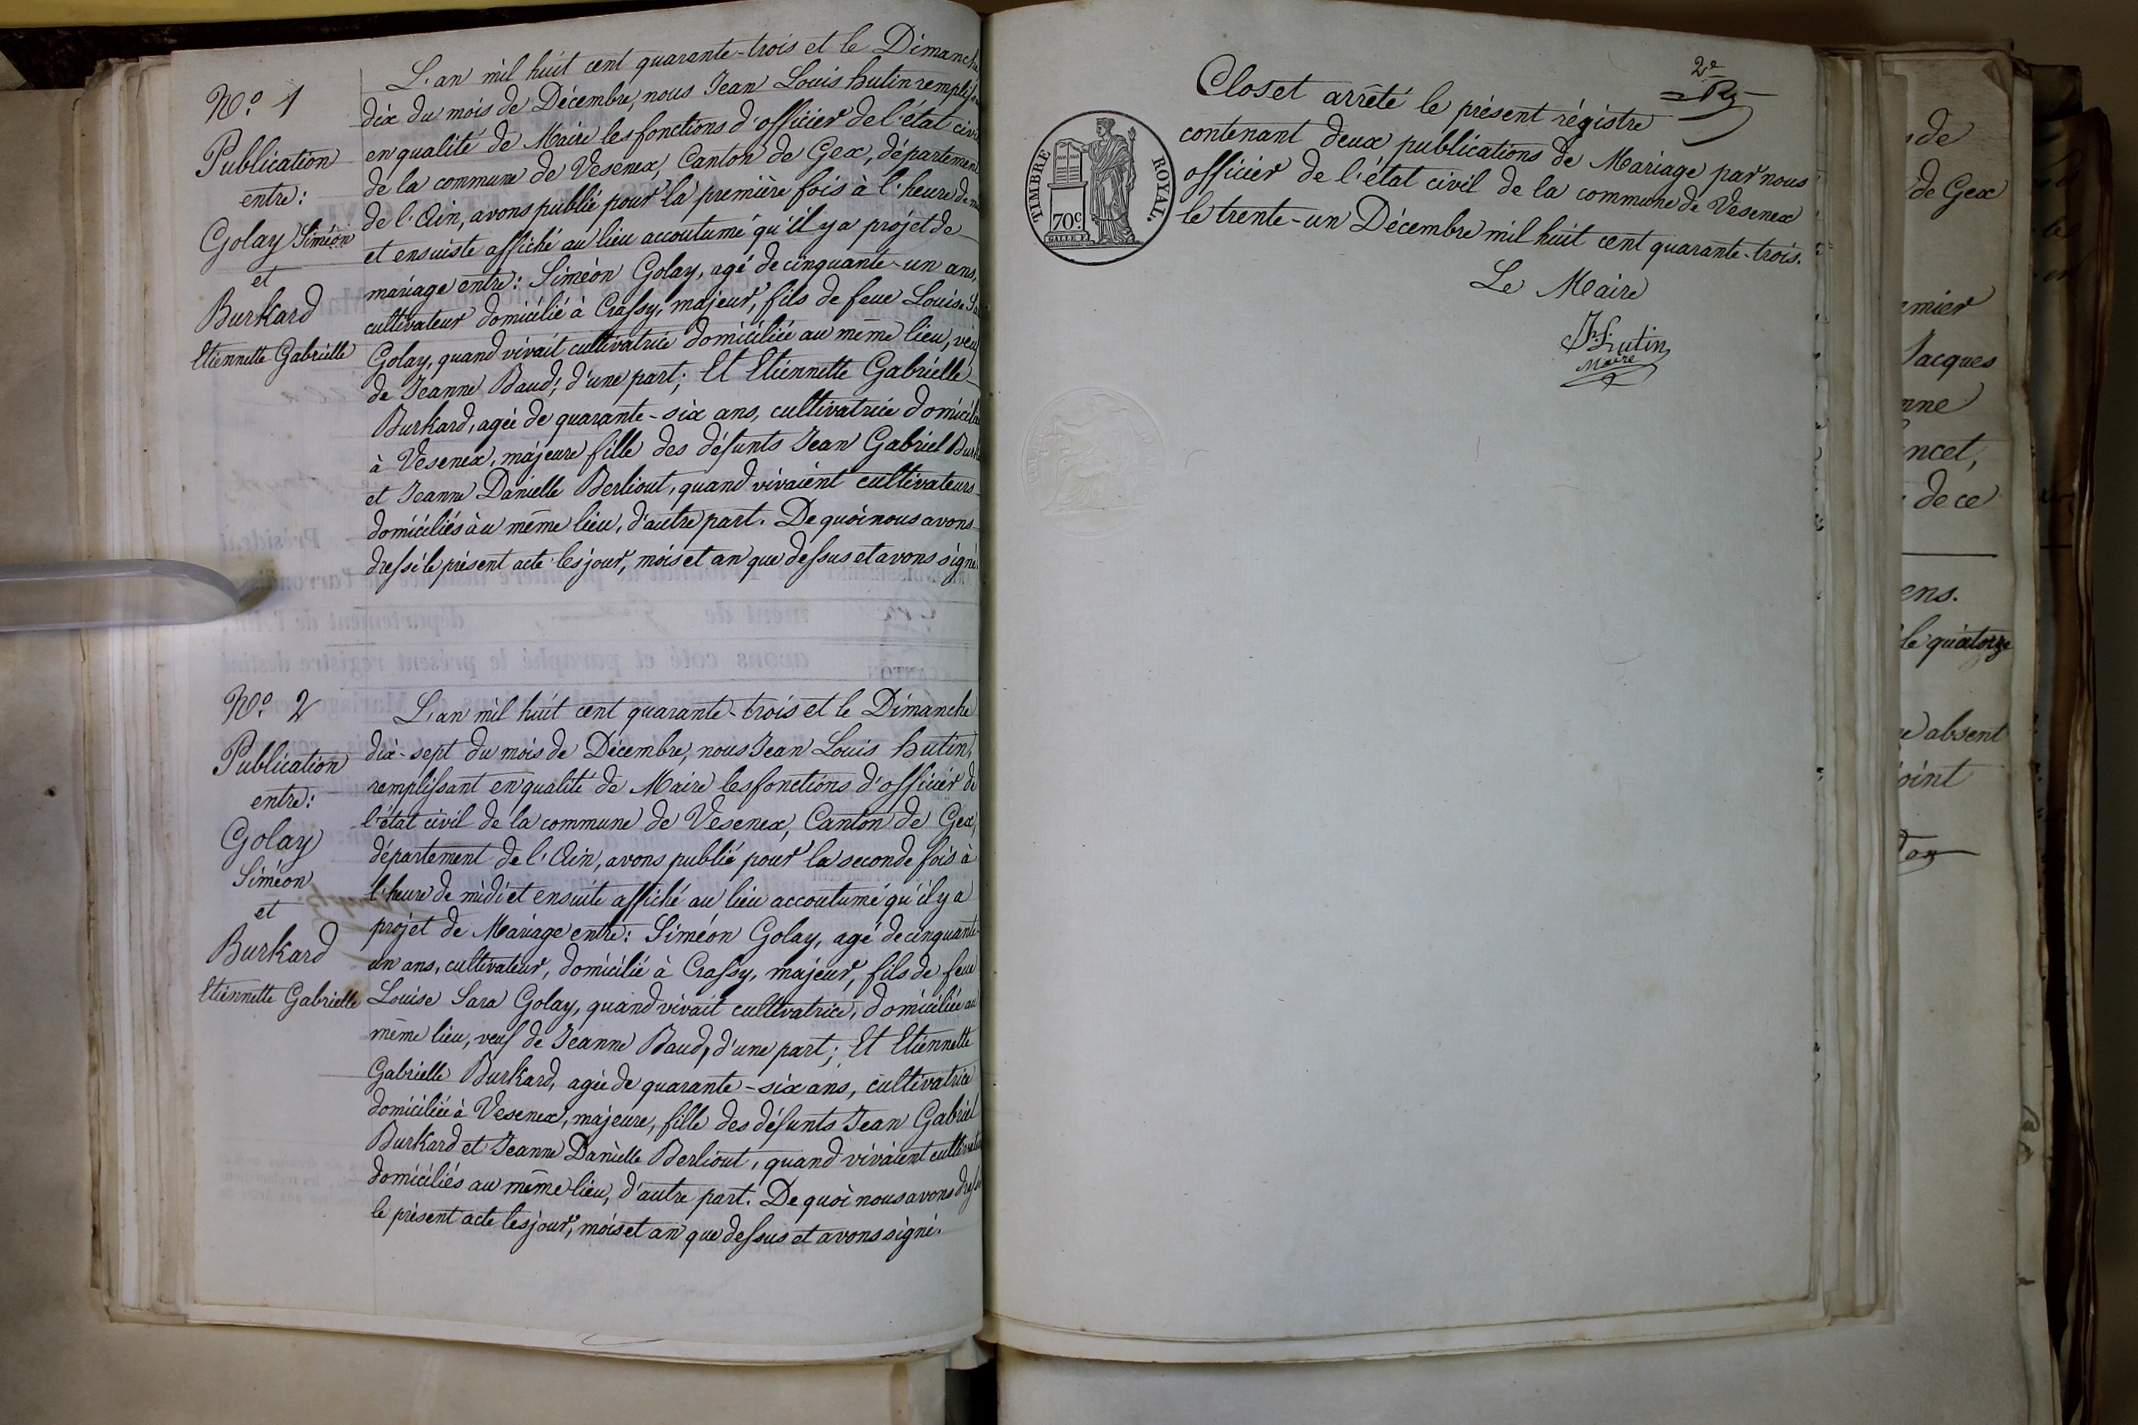 N.o 1
Publication
entre:
Golay Siméon
et
Burkard
Etiennette Gabrielle
L'an mil huit cent quarante-trois et le Dimanche
dix du mois de Décembre, nous Jean Louis hutin
en qualité de Maire les fonctions d'officier de l'état
de la commune de Vesenex, Canton de Gex, département
de l'Ain, avons publié pour la première fois à l'heure de
et ensuiste affiché au lieu accoutumé qu'il y a projet de
mariage entre: Siméon Golay, agé de cinquante-un ans,
cultivateur domicilié à Crassy, majeur, fils de feue Louise
Golay, quand vivait cultivatrice domiciliée au même lieu,
de Jeanne Baud; d'une part; Et Etiennette Gabrielle
Burkard, agée de quarante-six ans, cultivatrice
à Vesenex, majeure fille des défunts Jean Gabriel
et Jeanne Danielle Berliout, quand vivaient cultivateurs
domiciliés au même lieu, d'autre part. De quoi nous avons
dressé le présent acte les jour, mois et an que dessus et avons signé
N.o 2
Publication
entre:
Golay
Siméon
et
Burkard
Etiennette Gabrielle
L'an mil huit cent quarante-trois et le Dimanche
dix-sept du mois de Décembre, nous Jean Louis hutin,
remplissant en qualité de Maire les fonctions d'officier de
l'état civil de la commune de Vesenex, Canton de Gex,
département de l'Ain, avons publié pour la seconde fois à
l'heure de midi et ensuite affiché au lieu accoutumé qu'il y a
projet de Mariage entre: Siméon Golay, agé de cinquante-
un ans, cultivateur, domicilié à Crassy, majeur, fils de feue
Louise Sara Golay, quand vivait cultivatrice, domiciliée au
même lieu, veuf de Jeanne Baud, d'une part; Et Etiennette
Gabrielle Burkard, agée de quarante-six ans, cultivatrice
domiciliée à Vesenex, majeure, fille des défunts Jean Gabriel
Burkard et Jeanne Danielle Berliout, quand vivaient
domiciliés au même lieu, d'autre part. De quoi nous avons
le présent acte les jour, mois et an que dessus et avons signé.
2e
Closet arrêté le présent régistre
contenant deux publications de Mariage par nous
officier de l'état civil de la commune de Vesenex
le trente-un Décembre mil huit cent quarante-trois.
TIMBRE ROYAL.
70c
Le Maire
JL hutin
Maire
de Gex
Jacques
de ce
le quatorze
absent